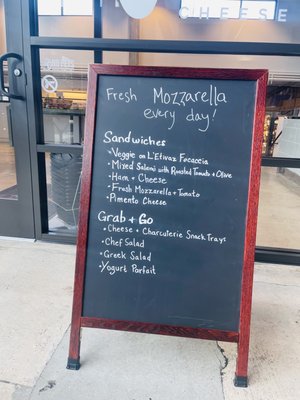 CHEESE
Fresh Mozzarella
every day!
Sandwiches
• Veggie on L'Etivaz Focaccia
• Mixed Salami with Roasted Tomato + Olive
• Ham + Cheese
• Fresh Mozzarella + Tomato
• Pimento Cheese
Grab + Go
• Cheese + Charcuterie Snack Trays
• Chef Salad
• Greek Salad
• Yogurt Parfait